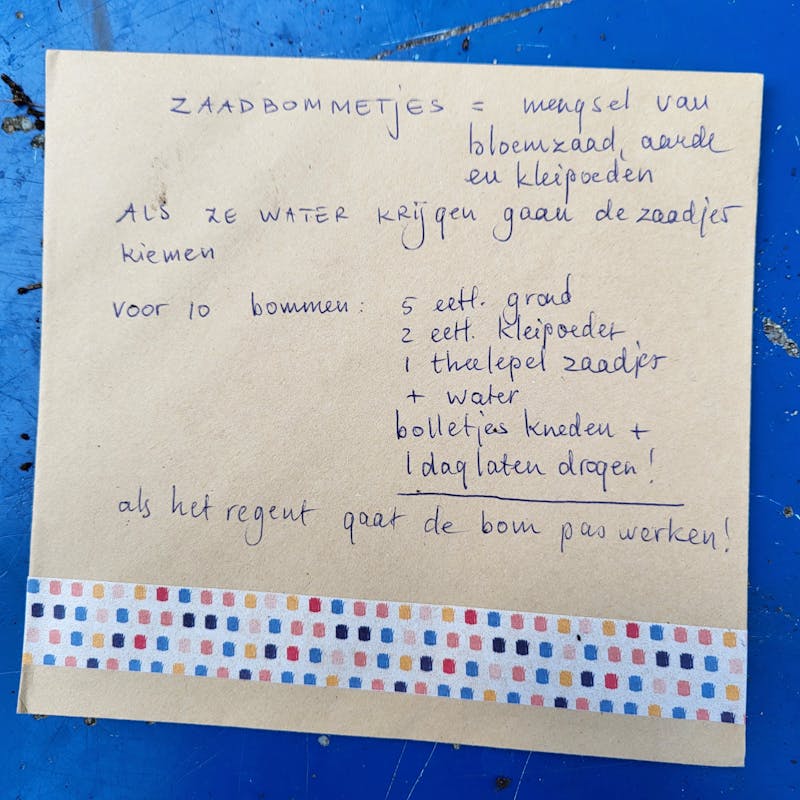 ZAADBOMMETJES = mengsel van
bloemzaad, aarde
en kleipoeden
ALS ZE WATER KRIJgen gaan de zaadjes
kiemen
voor 10 bommen: 5 eetl. grond
2 eetl. kleipoeder
1 theelepel zaadjes
+ water
bolletjes kneden +
1 dag laten drogen!
als het regent gaat de bom pas werken!